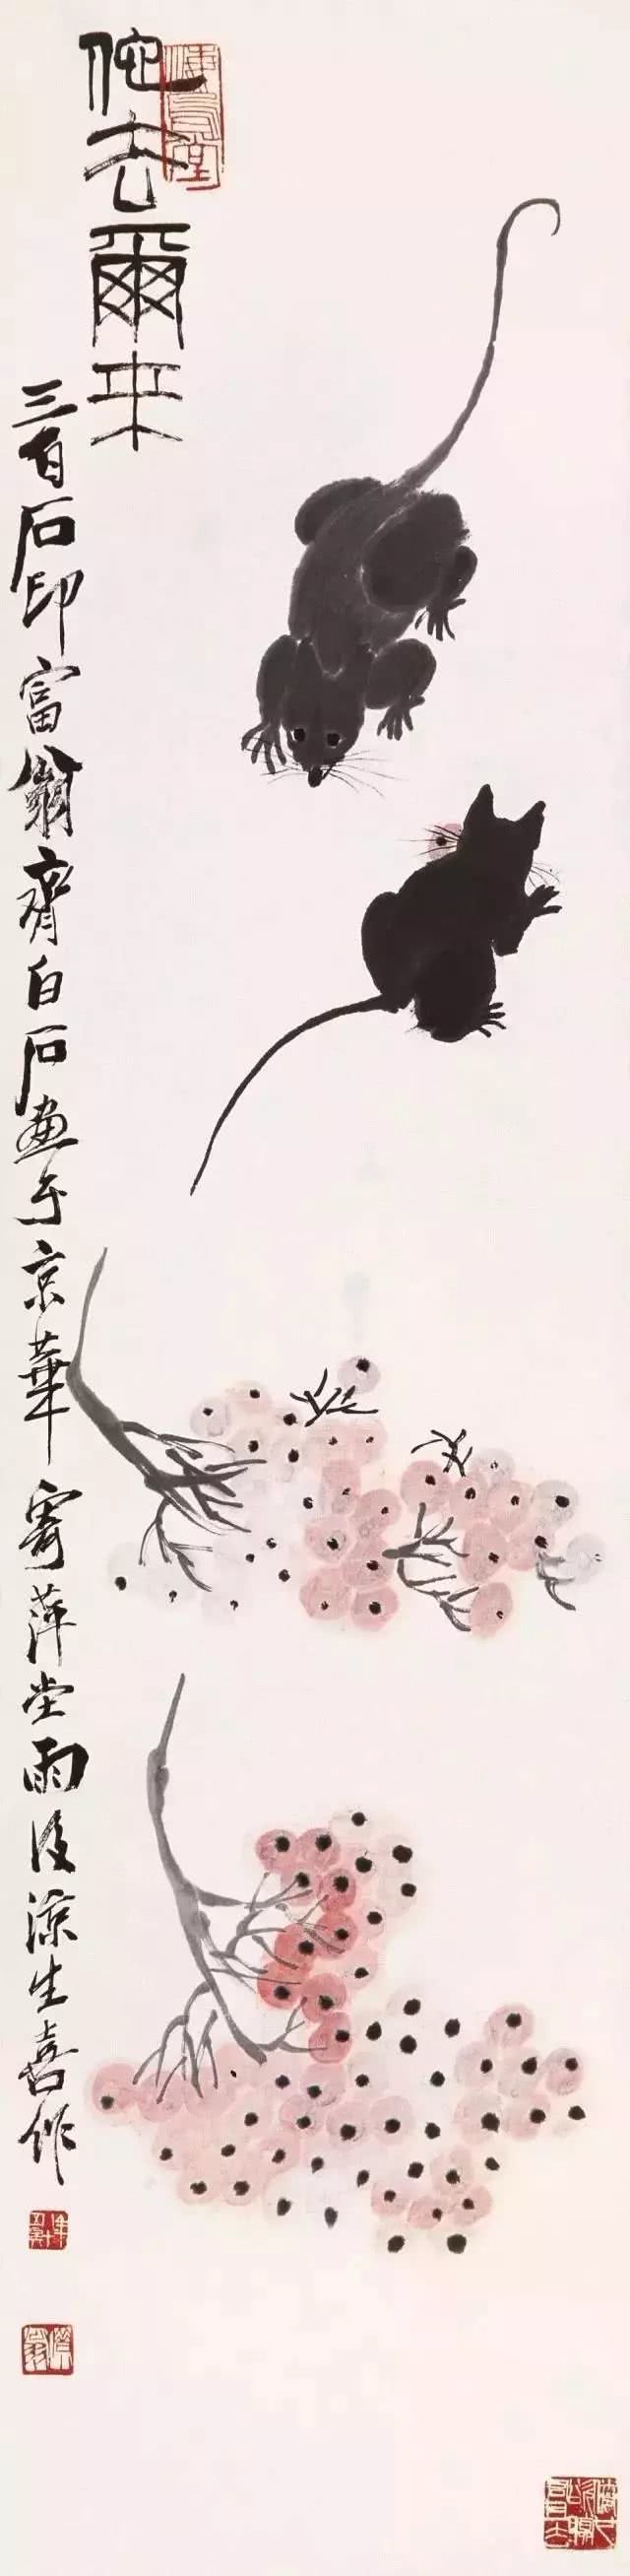 佗去爾来
悔烏堂
三百石印富翁齊白石畫于京華寄萍堂雨後涼生喜作